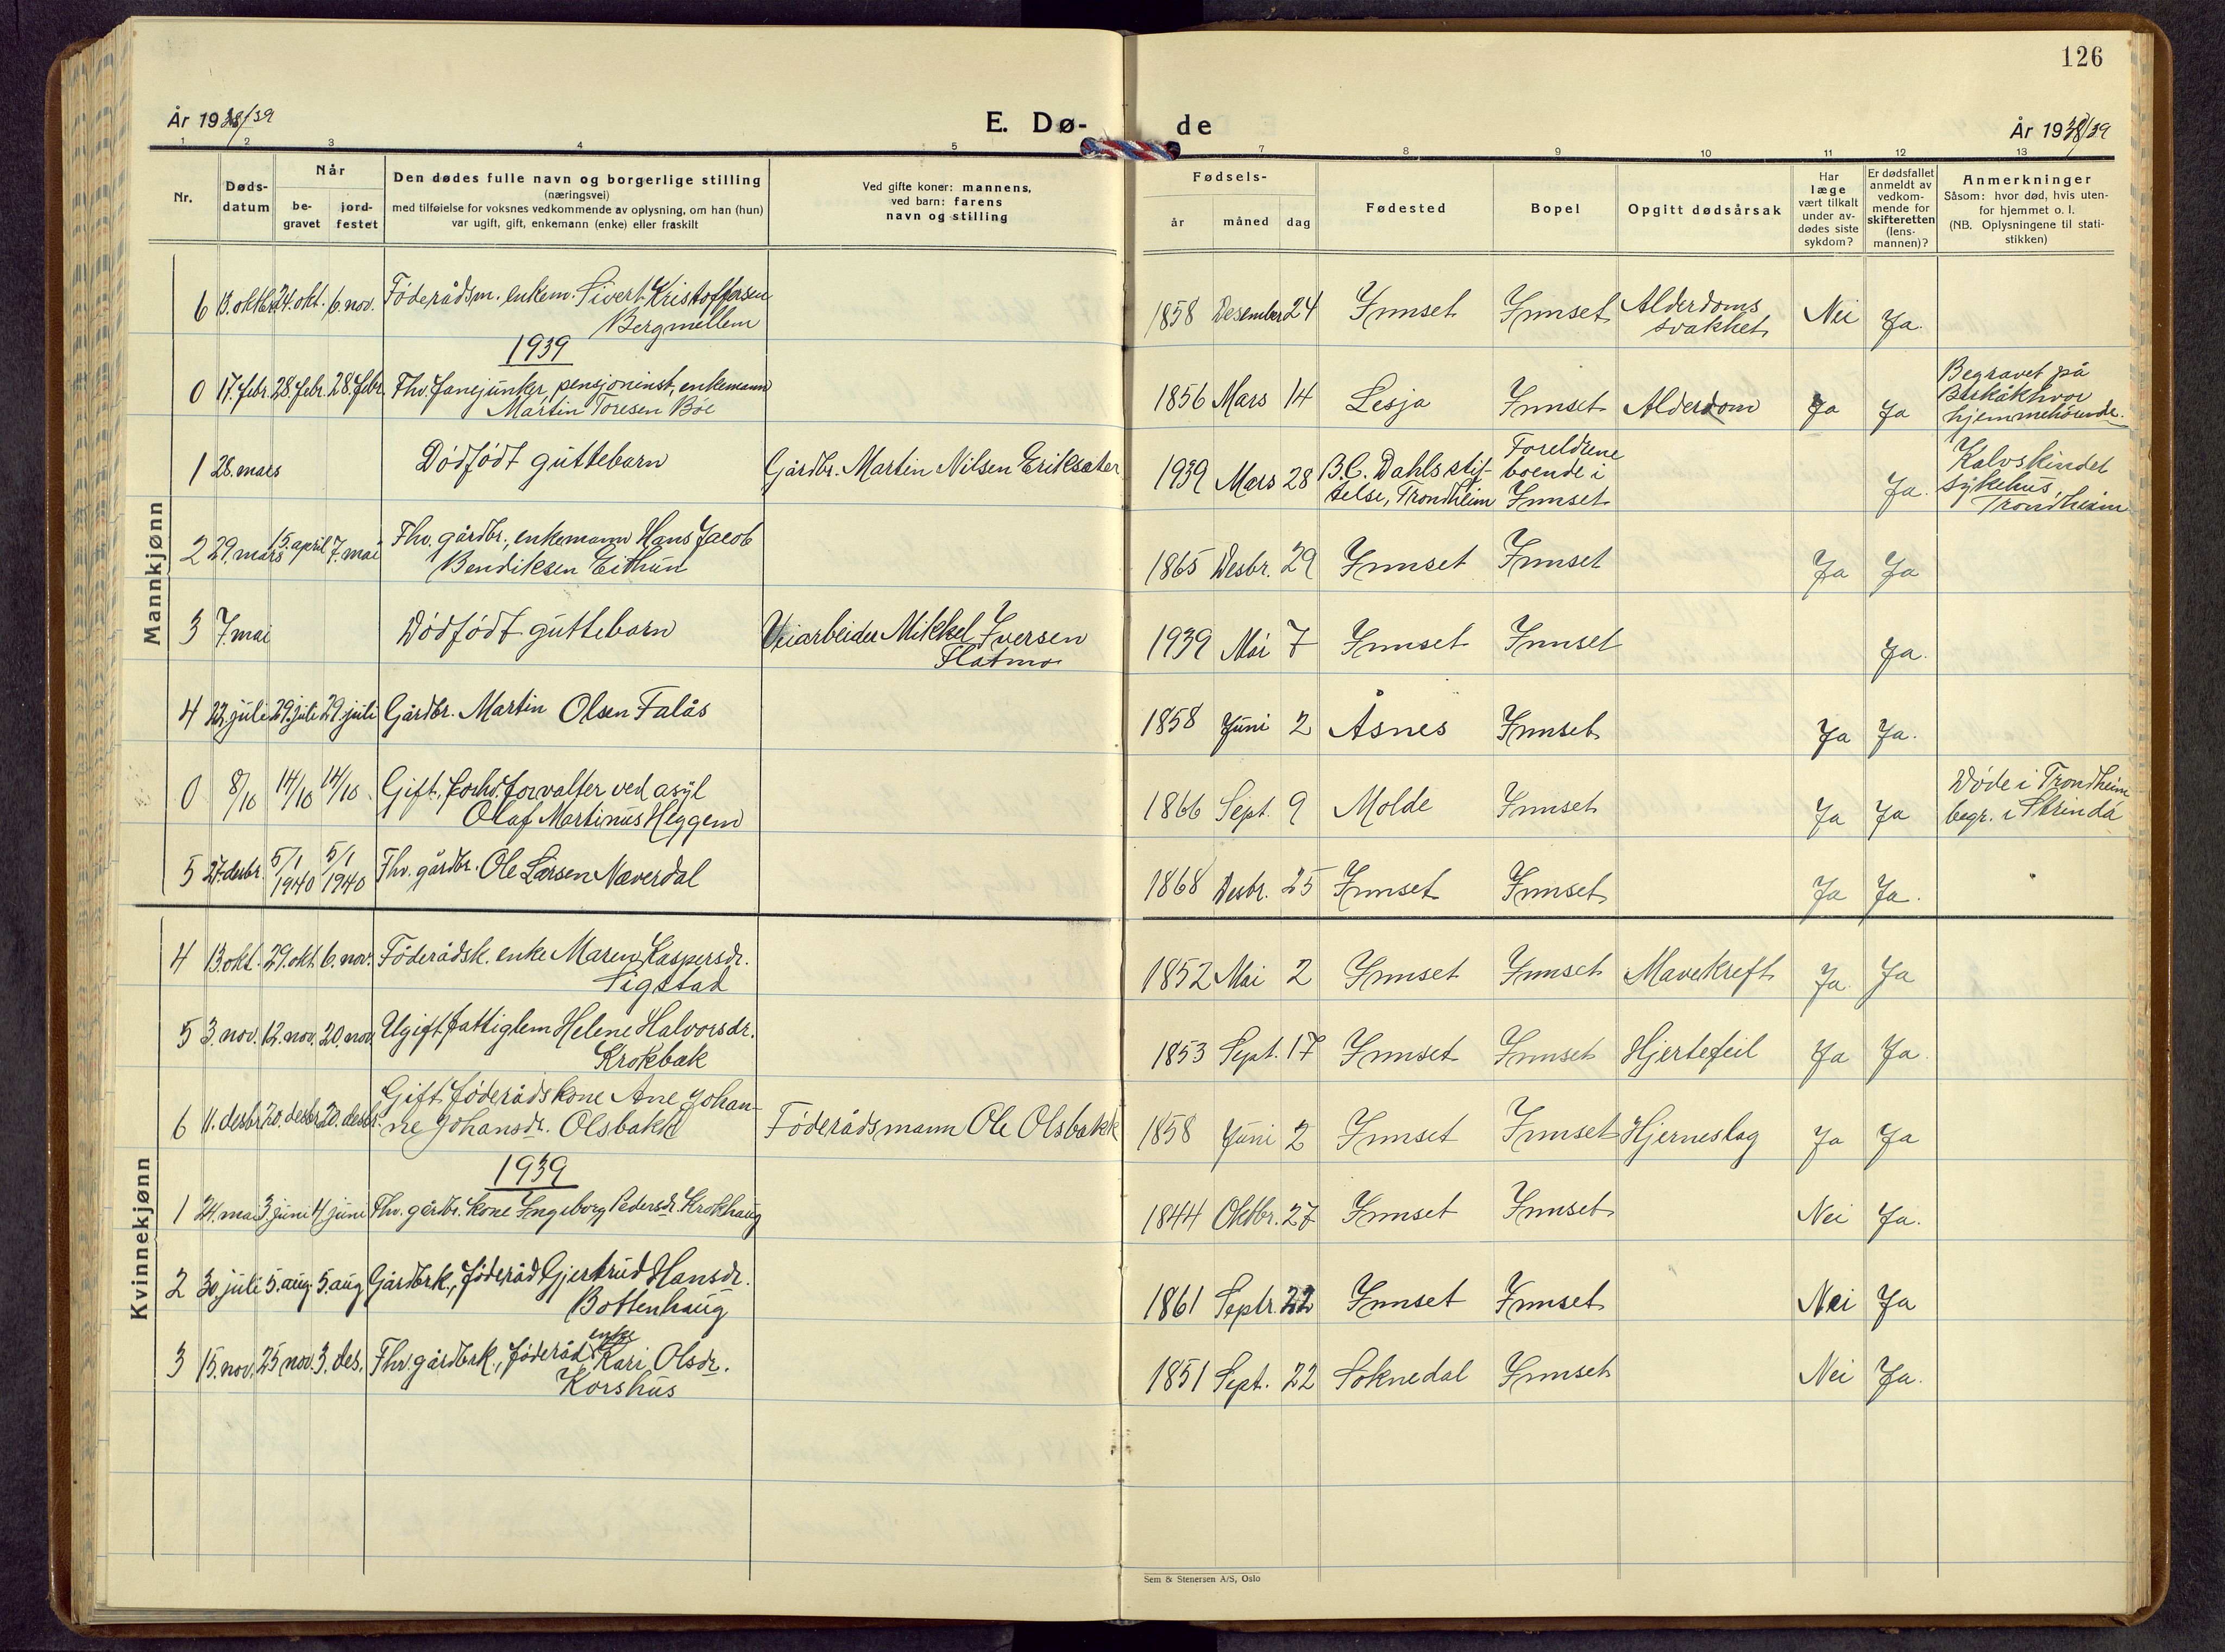 126
År 1938/39
E. Dø-
de
År 1938/39
1 2 3 4 5 7 8 9 10 11 12 13
Nr.
Døds-
datum
Når
be-
gravet
jord-
festet
Den dødes fulle navn og borgerlige stilling
(næringsvei)
med tilføielse for voksnes vedkommende av oplysning, om han (hun)
var ugift, gift, enkemann (enke) eller fraskilt
Ved gifte koner: mannens,
ved barn: farens
navn og stilling
Fødsels-
år måned dag
Fødested
Bopel
Opgitt dødsårsak
Har
læge
vært tilkalt
under av-
dødes siste
sykdom?
Er dødsfallet
anmeldt av
vedkom-
mende for
skifteretten
(lens-
mannen)?
Anmerkninger
Såsom: hvor død, hvis uten-
for hjemmet o. l.
(NB. Oplysningene til stati-
stikken)
Mannkjønn
6 13. oktbr. 24. okt. 6. nov. Föderådsm. enkem. Sivert Kristoffersen
Bergmellem
1858 Desember 24 Innset Innset Alderdoms
svakhet Nei Ja.
1939
0 17. febr. 28. febr. 28. febr. Fhv. fanejunker, pensjoninst, enkemann
Martin Toresen Böe
1856 Mars 14 Lesja Innset Alderdom Ja Ja
Begravet på
hvor
hjemmehörende.
1 28. mars Dödfödt guttebarn Gårdbr. Martin Nilsen Eriksæter
1939 Mars 28 B.C. Dahls stif-
telse, Trondheim
Foreldrene
boende i
Innset
Ja.
Kalvskindet
sykehus,
Trondheim
2 29. mars 15. april 7. mai Fhv. gårdbr., enkemann Hans Jacob
Bendiksen Eithun
1865 Desbr. 29 Innset Innset Ja Ja
3 7. mai Dödfödt guttebarn Veiarbeider Mikkel Iversen
Flatmo
1939 Mai 7 Innset Innset Ja.
4 22. juli 29. juli 29. juli Gårdbr. Martin Olsen Falås
1858 Juni 2 Åsnes Innset Ja Ja.
0 8/10 14/10 14/10 Gift, forhv. forvalter ved asyl
Olaf Martinus Heggem
1866 Sept. 9 Molde Innset Ja Ja
Döde i Trondheim
begr. i Strinda
5 27. desbr. 5/1 1940 5/1 1940 Fhv. gårdbr. Ole Larsen Næverdal
1868 Desbr. 25 Innset Innset Ja Ja.
Kvinnekjønn
4 13. okt. 29. okt. 6. nov. Föderådsk. enke Maren Kaspersdr.
Sigstad
1852 Mai 2 Innset Innset Mavekreft Ja. Ja
5 3. nov. 12. nov. 20. nov. Ugift fattiglem Helene Halvorsdr.
Krokbæk
1853 Sept. 17 Innset Innset Hjertefeil Ja Ja.
6 11. desbr. 20. desbr. 20. desbr. Gift föderådskone Ane Johan-
ne Johansdr. Olsbakk
Föderådsmann Ole Olsbakk
1858 Juni 2 Innset Innset Hjerneslag Ja Ja
1939
1 24. mai 3. juni 4 juni Fhv. gårdbr. kone Ingeborg Pedersdr. Krokhaug
1844 Oktbr. 27 Innset Innset Nei Ja.
2 30. juli 5. aug. 5. aug Gårdbrk., föderåd Gjertrud Hansdr.
Bottenhaug
1861 Septr. 22 Innset Innset Nei Ja
3 15. nov. 25 nov. 3. des. Fhv. gårdbrk., föderåd enke Kari Olsdr.
Korshus
1851 Sept. 22 Soknedal Innset Nei Ja.
Sem & Stenersen A/S, Oslo